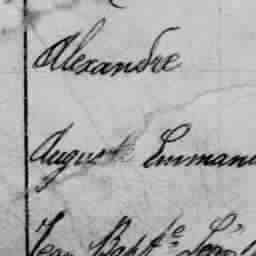 Alexandre
Auguste Emman
Jean Bapte